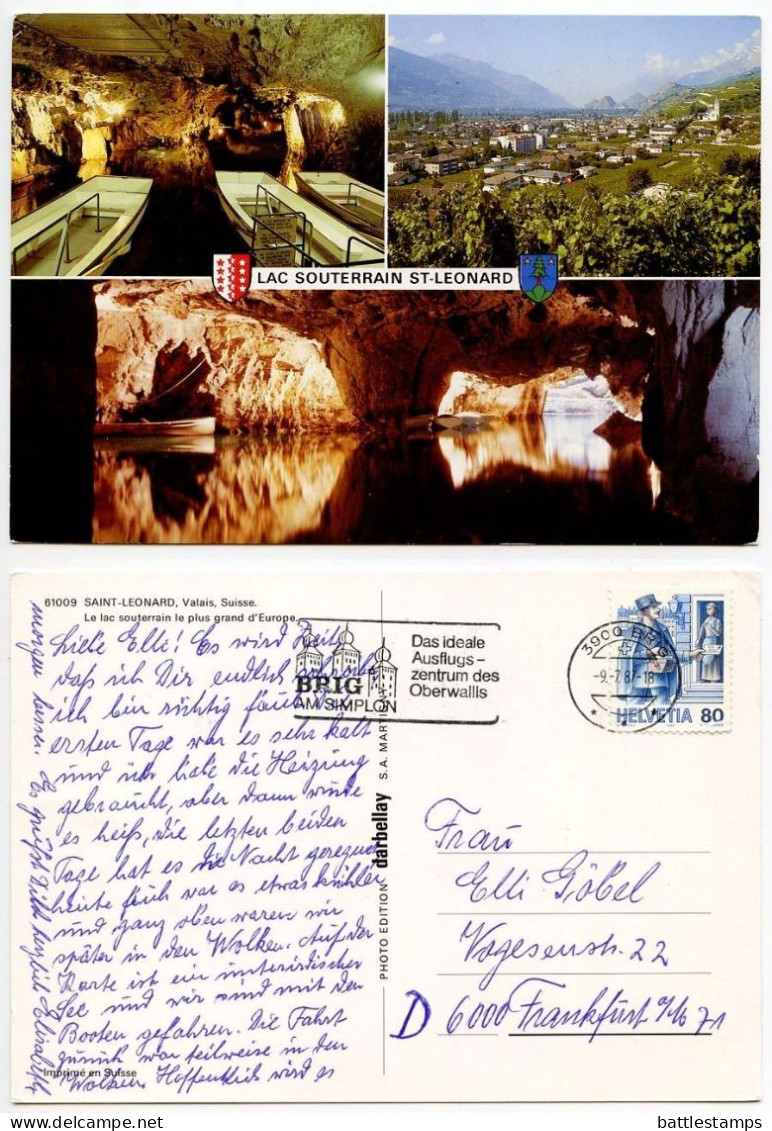 LAC SOUTERRAIN ST-LEONARD
61009 SAINT-LEONARD, Valais, Suisse.
Le lac souterrain le plus grand d'Europe.
Liebe Elli! Es wird Zeit,
daß ich Dir endlich schreibe
ich bin richtig faul
ersten Tage war es sehr kalt
und ich habe die Heizung
gebraucht, aber dann wurde
es heiß, die letzten beiden
Tage hat es die Nacht geregnet
heute früh war es etwas kühler
und ganz oben waren wir
später in den Wolken. Auf der
Karte ist ein unterirdischer
See und wir sind mit den
Booten gefahren. Die Fahrt
zurück war teilweise in den
Wolken. Hoffentlich wird es
morgen besser. Es grüßt Dich herzlich Elisabeth
Imprimé en Suisse
BRIG
AM SIMPLON
Das ideale
Ausflugs-
zentrum des
Oberwallis
3900 BRIG
-9.-7.87-18
HELVETIA 80
PHOTO EDITION darbellay S.A. MARTIGNY
Frau
Elli Göbel
Vogesenstr. 22
D 6000 Frankfurt a/M 71
battlestamps